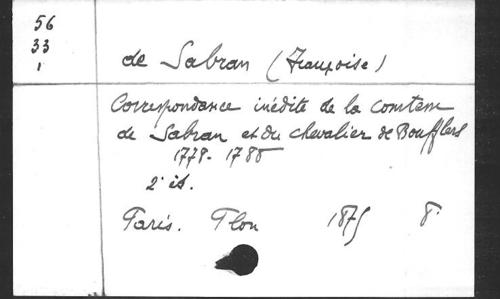 56
33
1
de Sabran (Françoise)
Correspondance inédite de la comtesse
de Sabran et du chevalier de Boufflers
1778-1788
2e éd.
Paris. Plon 1875 8°